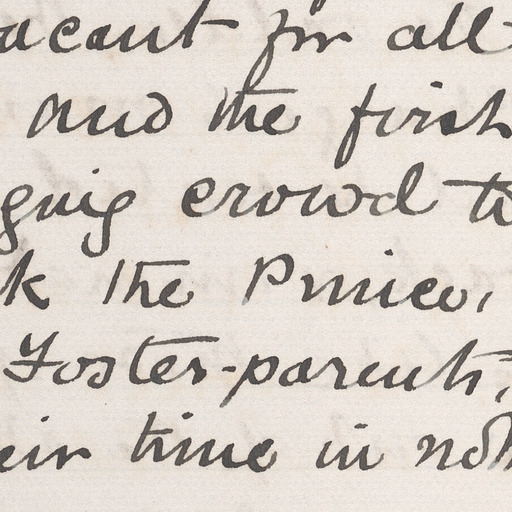 acant for all
and the first
ging crowd to
k the Prince,
Foster-parents,
eir time in not